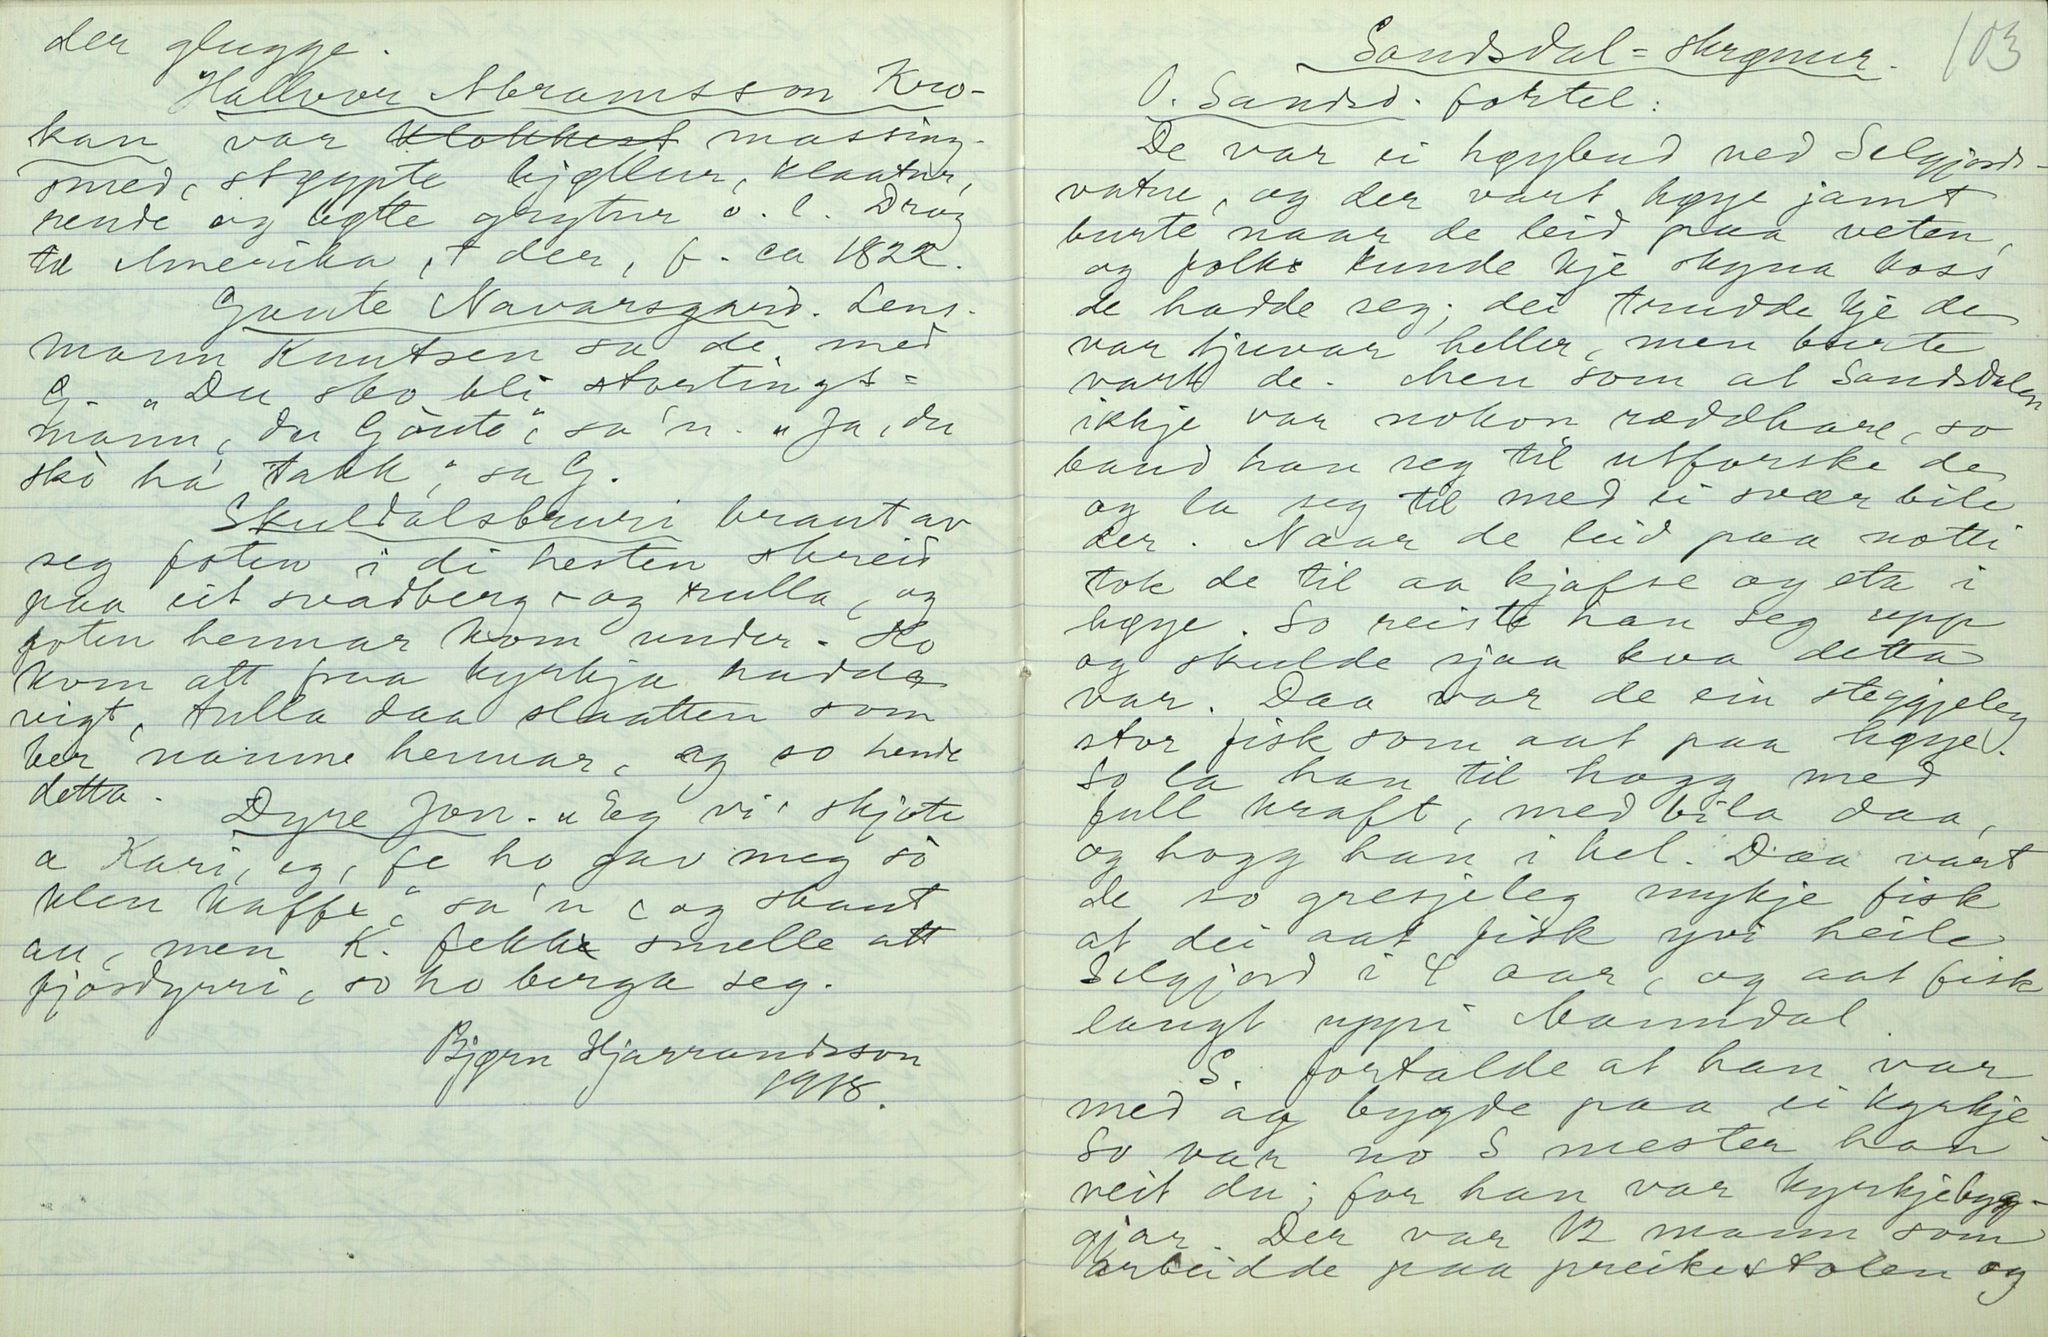 der glugge.
Hallvor Abramsson Kro-
kan var klokkest massing-
smed, støypte bjøllur, klaatur,
rende og bøtte grytur o. l. Drog
te Amerika, † der, f. ca 1822.
Gunte Navarsgard. Lens-
mann Knutsen sa de, med
G. „Du sko bli stortings=
mann, du Gònte“, sa'n. „Ja, du
skò ha takk“, sa G.
Skuldalsbruri braut av
seg foten i di hesten skreid
paa eit svadberg og rulla, og
foten hennar kom under. Ho
kom att fraa kyrkja hadde
vigt, tulla daa slaatten som
ber namne hennar, og so hende
detta.
Dyre Jon. „Eg vi' skjote
a Kari, eg, fe ho gav meg so
klen kaffe“, sa'n, og skaut
au, men K. fekk smelle att
fjosdyrri, so ho berga seg.
Bjørn Hjarrandsson
1918.
103
Sandsdal=skrønur.
O. Sandsd. fortel:
De var ei høybud ved Selgjords-
vatne, og der vart høye jamt
burte naar de leid paa veten,
og folk kunde kje skyna koss
de hadde seg; dei trudde kje de
var tjuvar heller, men burte
vart de. Men som at Sandsdalen
ikkje var nokon ræddhare, so
baud han seg til utforske de
og la seg til med ei svær bile
der. Naar de leid paa notti
tok de til aa kjafse og eta i
høye. So reiste han seg upp
og skulde sjaa kva detta
var. Daa var de ein steggjeleg
stor fisk som aat paa høye.
So la han til hogg med
full kraft, med bila daa,
og hogg han i hel. Daa vart
de so gresjeleg mykje fisk
at dei aat fisk yvi heile
Selgjord i 4 aar, og aat fisk
langt uppi Manndal.
S. fortalde at han var
med og bygde paa ei kyrkje.
So var no S mester han
veit du; for han var kyrkjebyg-
gjar. Der var 12 mann som
arbeidde paa preikestolen og